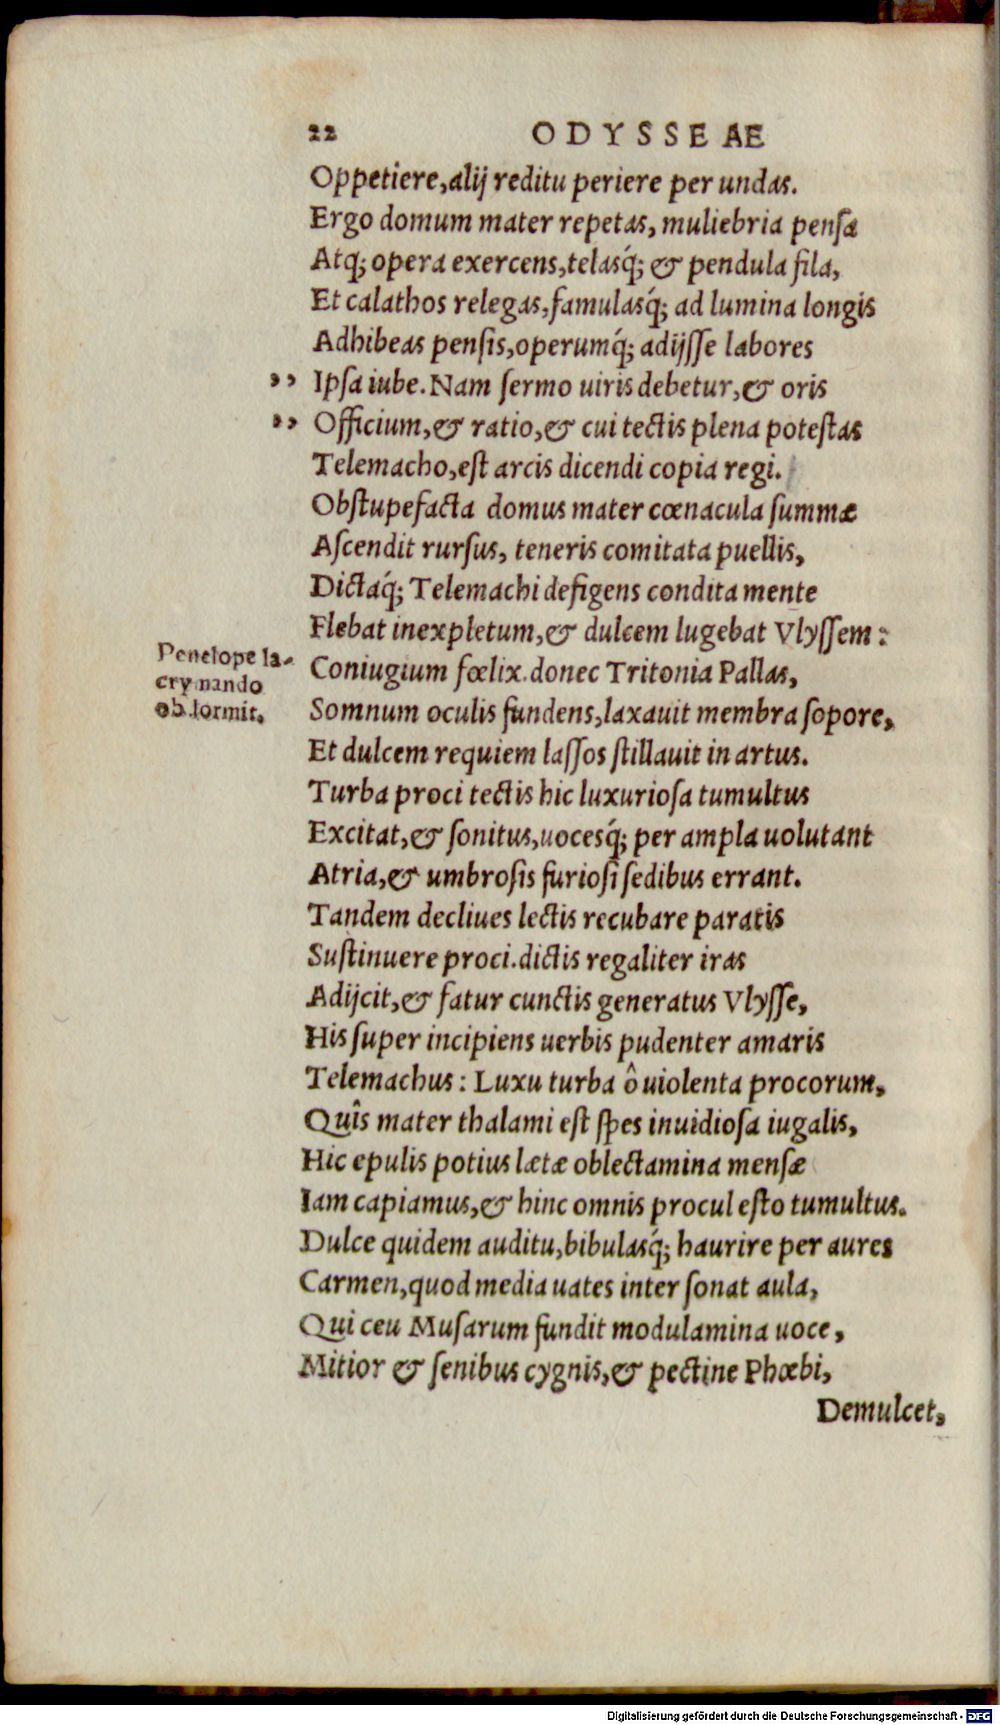 22 ODYSSEAE
Oppetiere, alij reditu periere per undas.
Ergo domum mater repetas, muliebria penſa
Atq; opera exercens, telasq́; & pendula fila,
Et calathos relegas, famulasq́; ad lumina longis
Adhibeas penſis, operumq́; adijſſe labores
,, Ipſa iube. Nam ſermo uiris debetur, & oris
,, Officium, & ratio, & cui tectis plena poteſtas
Telemacho, eſt arcis dicendi copia regi.
Obſtupefacta domus mater cœnacula ſummæ
Aſcendit rurſus, teneris comitata puellis,
Dictaq́; Telemachi defigens condita mente
Flebat inexpletum, & dulcem lugebat Vlyſſem:
Penelope la-
crymando
obdormit.
Coniugium fœlix. donec Tritonia Pallas,
Somnum oculis fundens, laxauit membra ſopore,
Et dulcem requiem laſſos ſtillauit in artus.
Turba proci tectis hic luxurioſa tumultus
Excitat, & ſonitus, uocesq́; per ampla uolutant
Atria, & umbroſis furioſi ſedibus errant.
Tandem decliues lectis recubare paratis
Suſtinuere proci. dictis regaliter iras
Adijcit, & fatur cunctis generatus Vlyſſe,
His ſuper incipiens uerbis pudenter amaris
Telemachus: Luxu turba ô uiolenta procorum,
Quîs mater thalami eſt ſpes inuidioſa iugalis,
Hic epulis potius lætæ oblectamina menſæ
Iam capiamus, & hinc omnis procul eſto tumultus.
Dulce quidem auditu, bibulasq́; haurire per aures
Carmen, quod media uates inter ſonat aula,
Qui ceu Muſarum fundit modulamina uoce,
Mitior & ſenibus cygnis, & pectine Phœbi,
Demulcet,
Digitalisierung gefördert durch die Deutsche Forschungsgemeinschaft - DFG